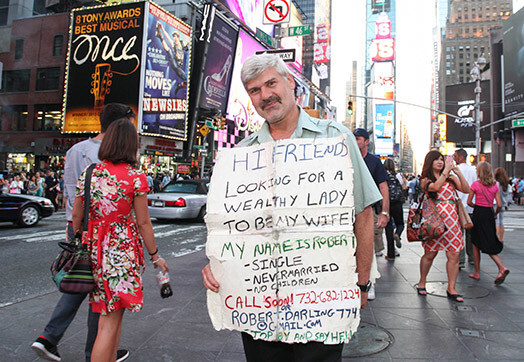 8 TONY AWARDS
BEST
MUSICAL
once
NEWSIES
HI FRIENDS
LOOKING FOR A
WEALTHY LADY
TO BE MY WIFE!
MY NAME IS ROBERT
-SINGLE
-NEVER MARRIED
-NO CHILDREN
CALL SOON! 732-682-1224
OR
ROBERT.DARLING774
@GMAIL.COM
STOP BY AND SAY HELLO